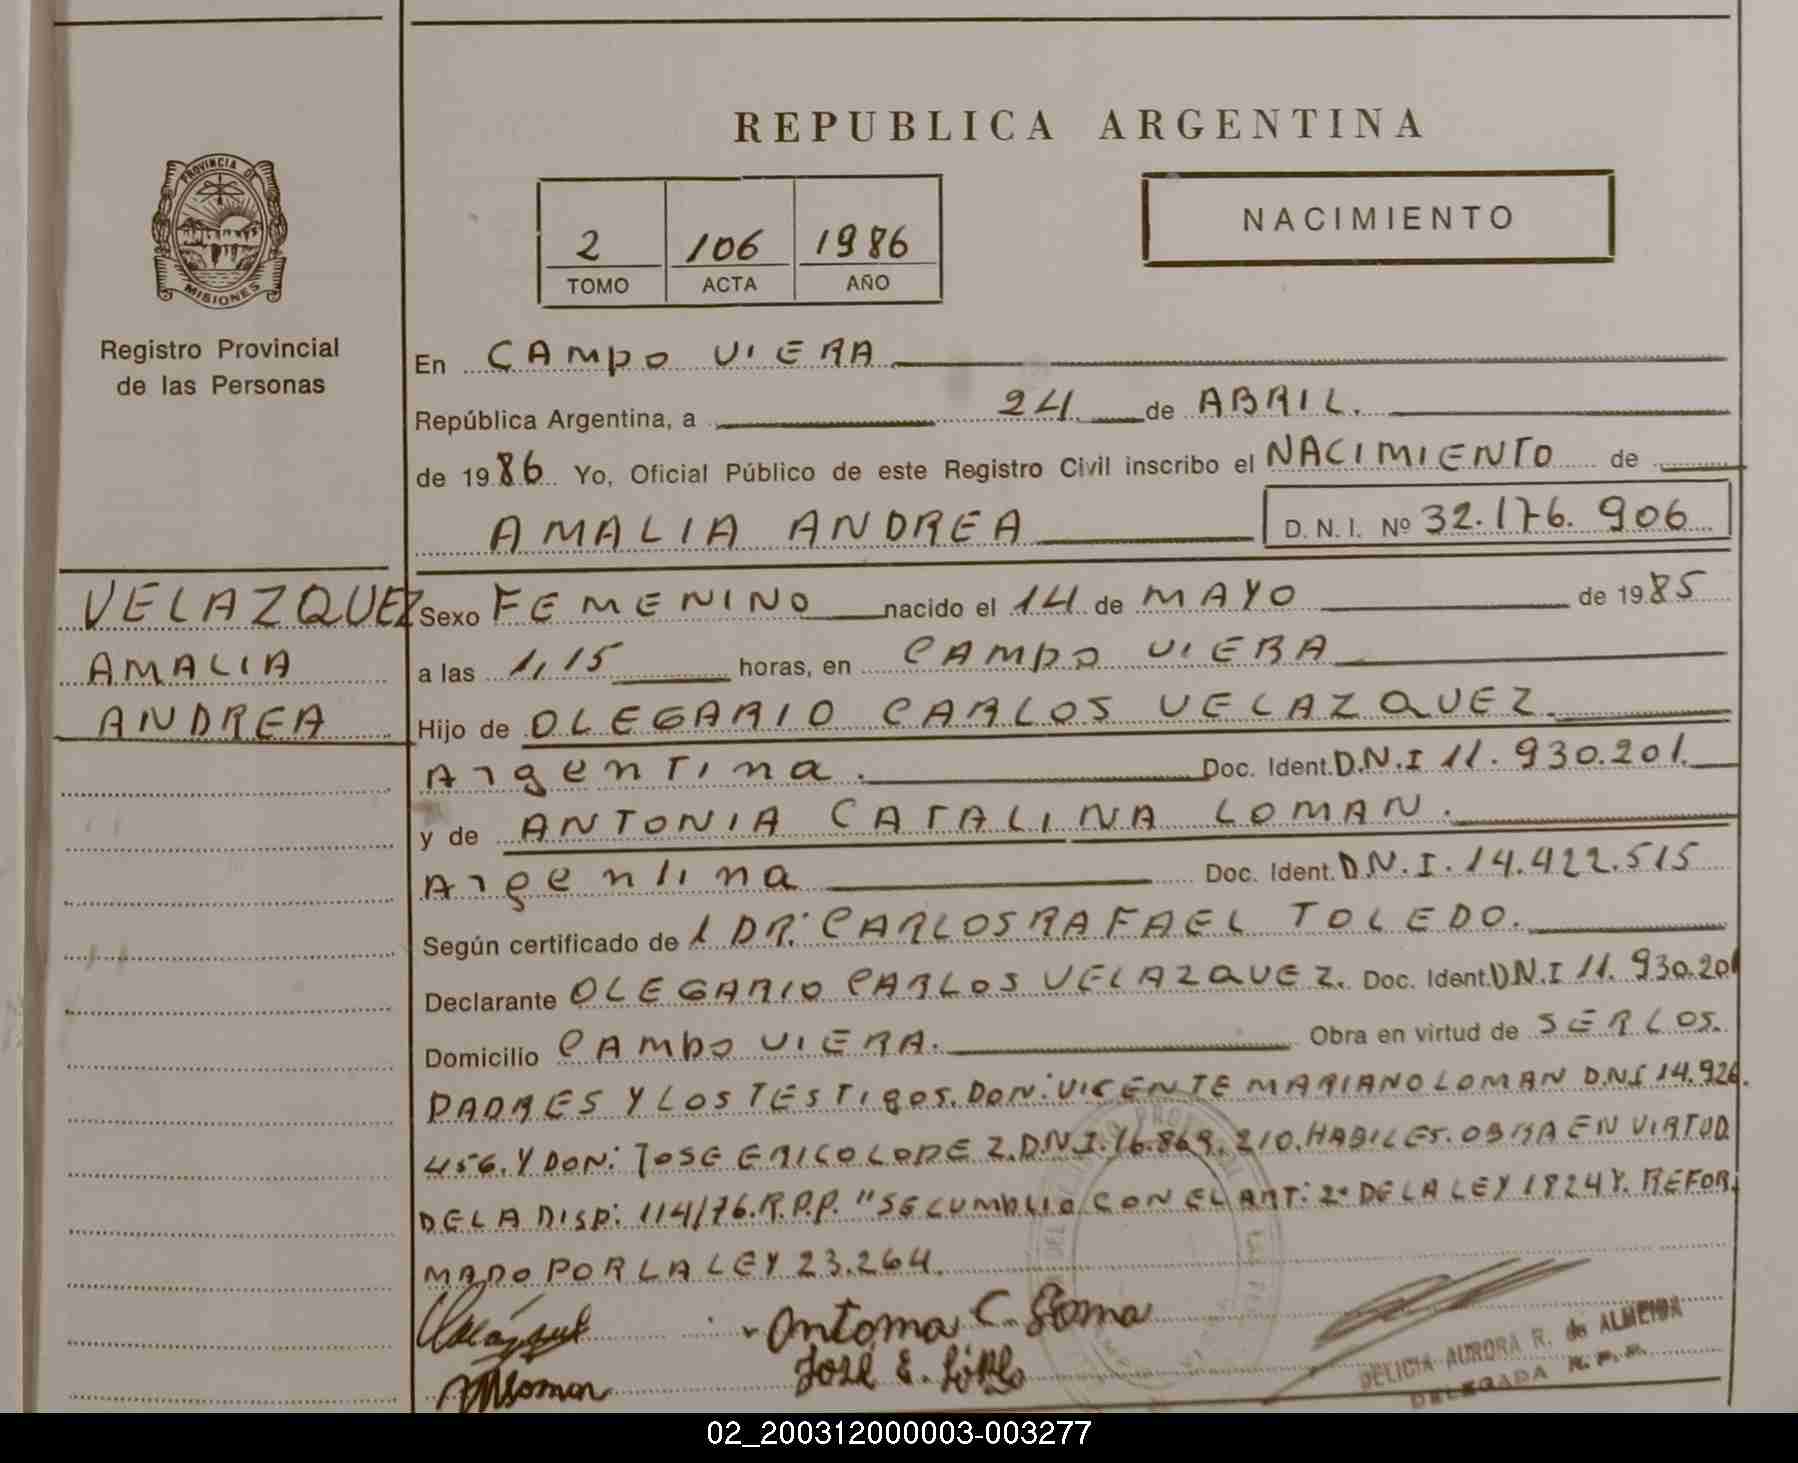 REPUBLICA ARGENTINA
PROVINCIA DE
MISIONES
Registro Provincial
de las Personas
2 106 1986
TOMO ACTA AÑO
NACIMIENTO
En CAMPO VIERA
República Argentina, a 24 de ABRIL.
de 1986 Yo, Oficial Público de este Registro Civil inscribo el NACIMIENTO de
AMALIA ANDREA D. N. I. Nº 32.176.906
VELAZQUEZ
AMALIA
ANDREA
Sexo FEMENINO nacido el 14 de MAYO de 1985
a las 1,15 horas, en CAMPO VIERA
Hijo de OLEGARIO CARLOS VELAZQUEZ.
Argentina. Doc. Ident. D.N.I 11.930.201.
y de ANTONIA CATALINA LOMAN.
Argentina Doc. Ident. D.N.I. 14.422.515
Según certificado de l DR: CARLOS RAFAEL TOLEDO.
Declarante OLEGARIO CARLOS VELAZQUEZ. Doc. Ident. D.N.I 11.930.201
Domicilio CAMPO VIERA. Obra en virtud de SER LOS.
PADRES Y LOS TESTIGOS. DON: VICENTE MARIANO LOMAN D.N.I 14.926.
456. Y DON: JOSE ERICO LOPEZ. D.N.I. 16.869.210. HABILES. OBRA EN VIRTUD
DE LA DISP: 114/76. R.P.P. "SE CUMPLIO CON EL ART: 2º DE LA LEY 18248. REFOR.
MADO POR LA LEY 23.264.
Antonia C. Loman
José E. López
DELICIA AURORA R. de ALMEIDA
DELEGADA R. P. P.
02_200312000003-003277